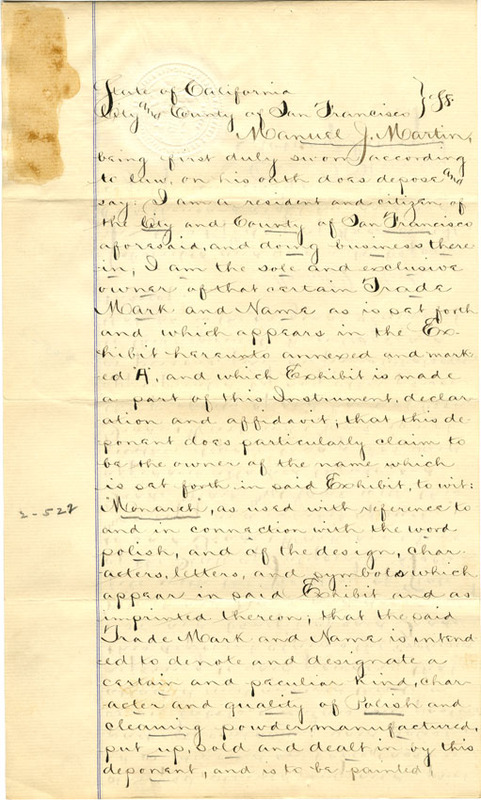 State of California
City and County of San Francisco } ss.
Manuel J. Martin,
being first duly sworn according
to law, on his oath does depose and
say: I am a resident and citizen of
the City and County of San Francisco
aforesaid, and doing business there
in, I am the sole and exclusive
owner of that certain Trade
Mark and Name as is set forth
and which appears in the Ex-
hibit hereunto annexed and mark
ed "A", and which Exhibit is made
a part of this Instrument, declar
ation and affidavit; that this de
ponent does particularly claim to
be the owner of the name which
is set forth in said Exhibit, to wit:
2-522
Monarch, as used with reference to
and in connection with the word
polish, and of the design, char
acters, letters, and symbols which
appear in said Exhibit and as
imprinted thereon; that the said
Trade Mark and Name is intend
ed to denote and designate a
certain and peculiar kind, char
acter and quality of Polish and
cleaning powder, manufactured,
put up, sold and dealt in by this
deponent, and is to be painted,